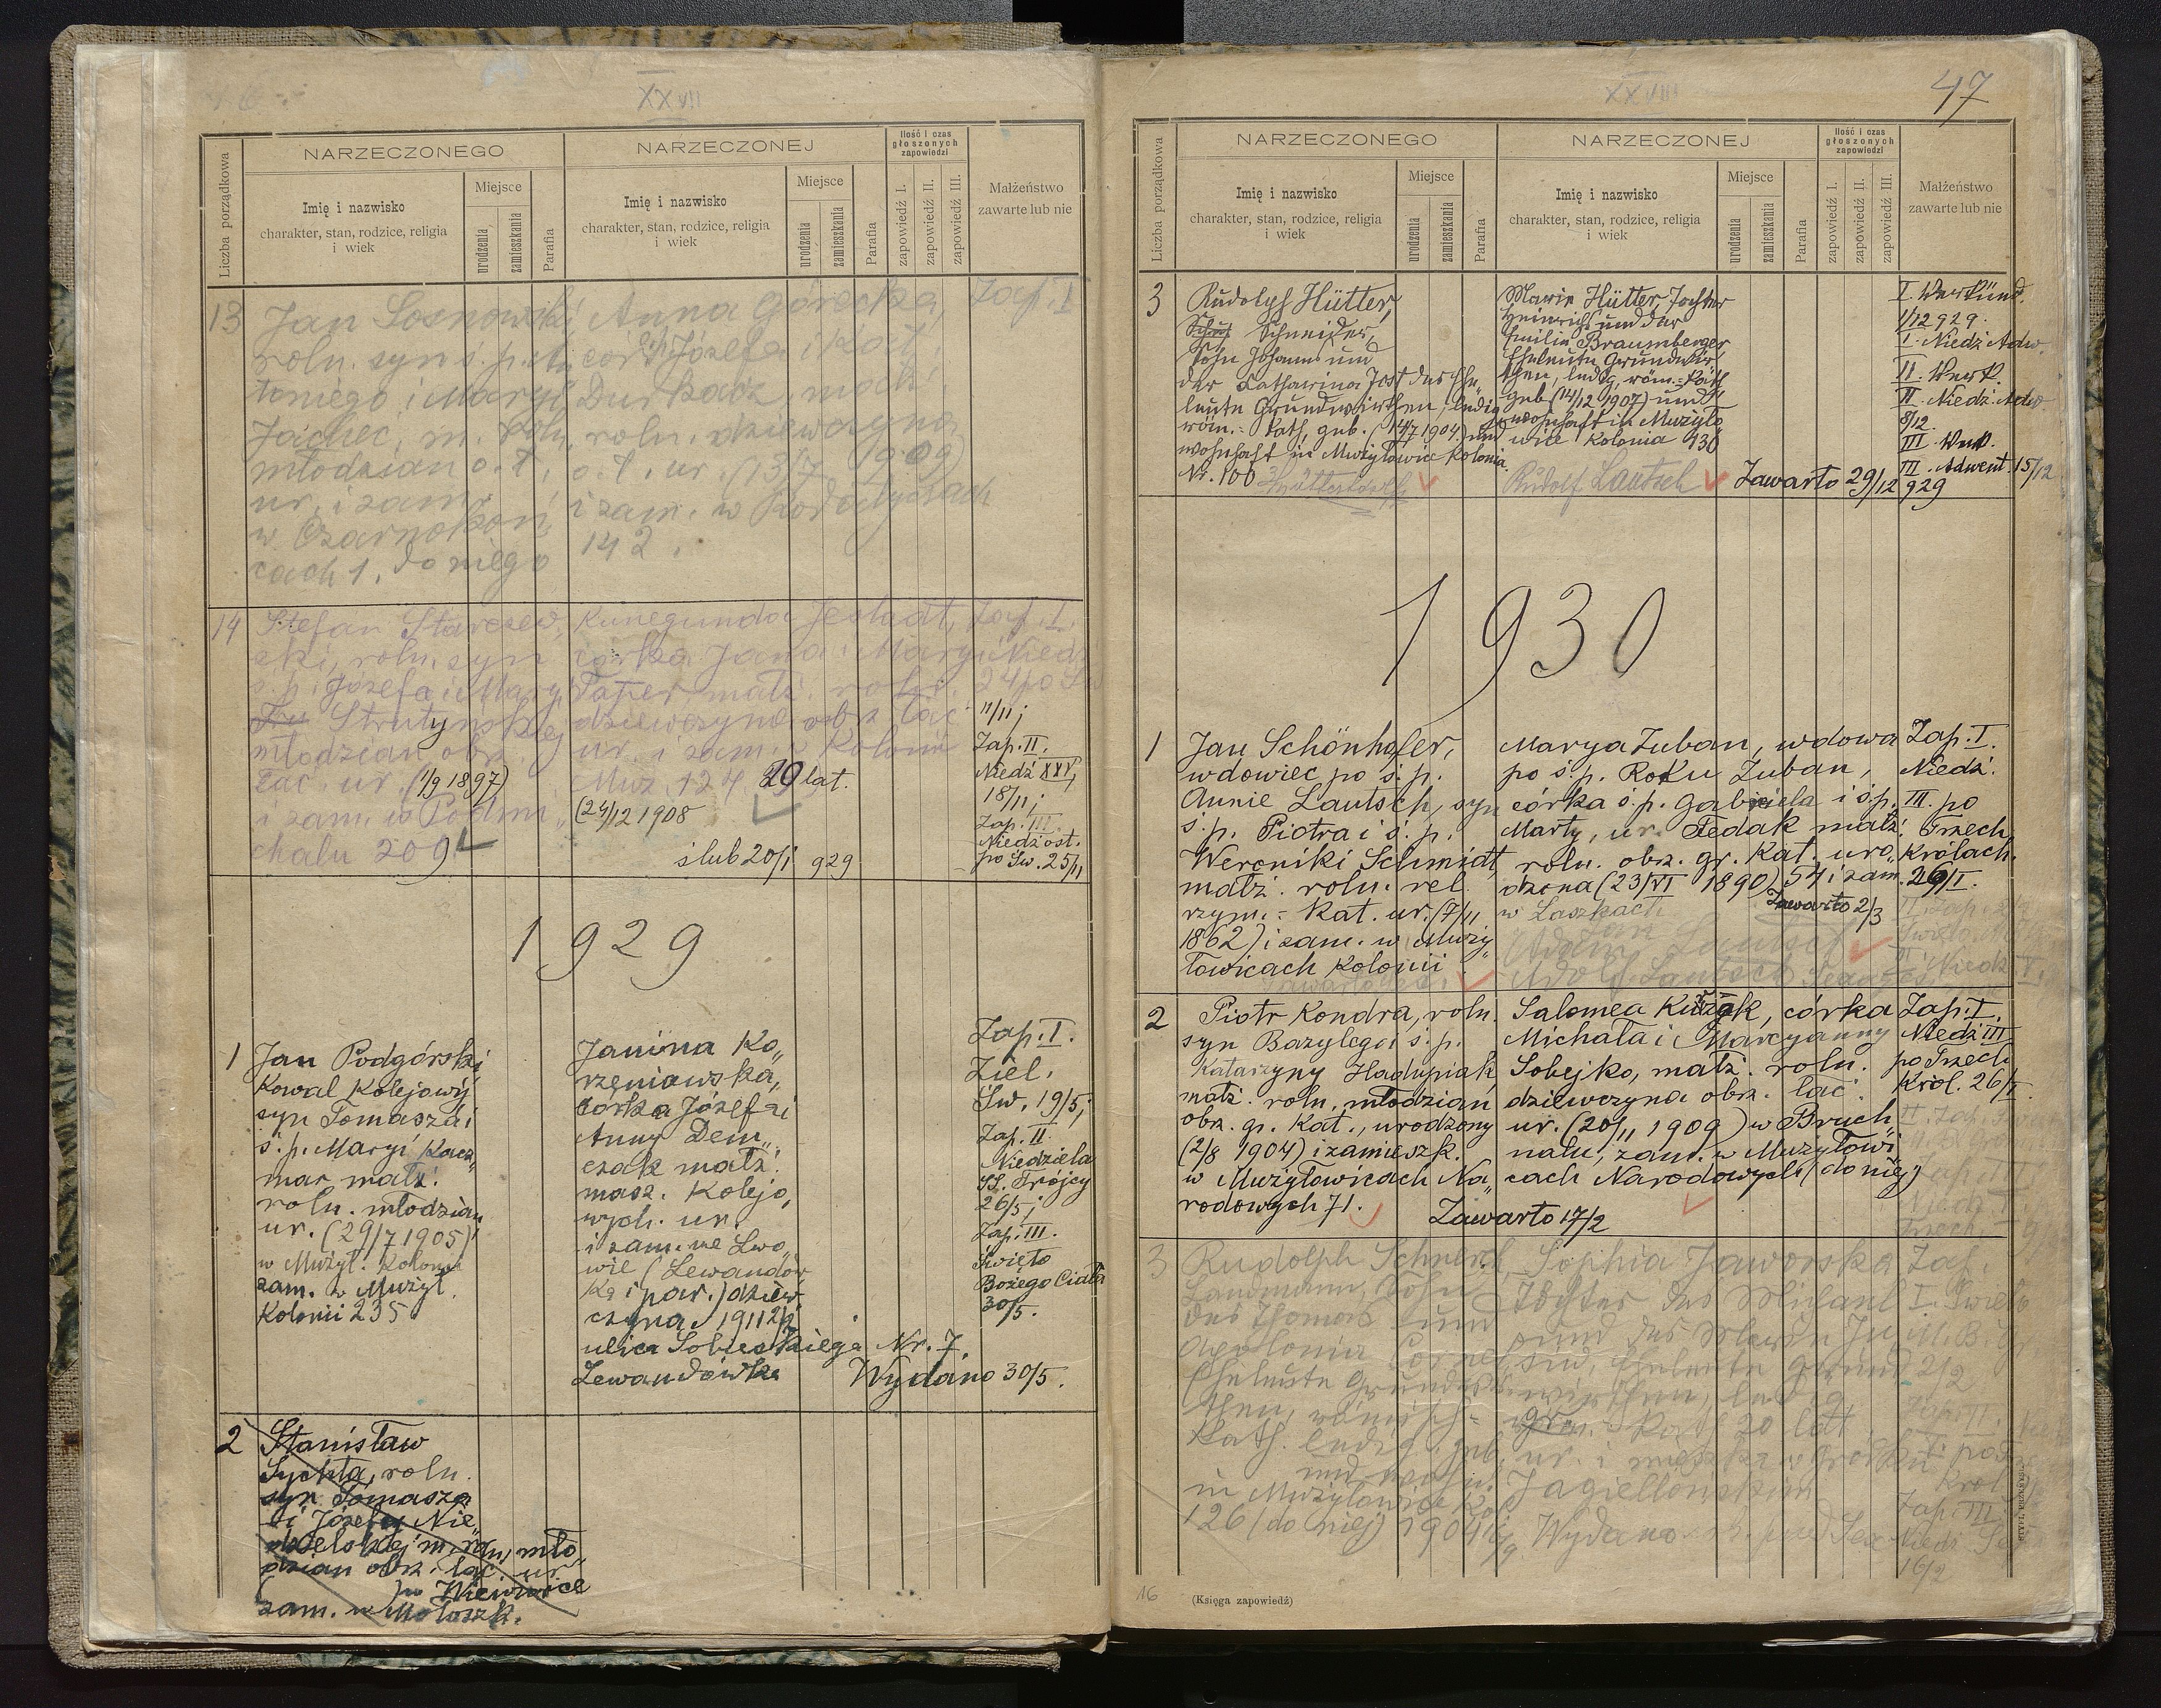 XXVII
NARZECZONEGO
NARZECZONEJ
Ilość i czas
głoszonych
zapowiedzi
Liczba porządkowa
Imię i nazwisko
charakter, stan, rodzice, religia
i wiek
Miejsce
urodzenia
zamieszkania
Parafia
Imię i nazwisko
charakter, stan, rodzice, religia
i wiek
Miejsce
urodzenia
zamieszkania
Parafia
zapowiedź I.
zapowiedź II.
zapowiedź III.
Małżeństwo
zawarte lub nie
13
Jan Sosnowski,
roln. syn ś. p. An
toniego i Maryi
młodzian o. ł.
ur. i zam.
w Czarnokoń
cach 1. do niego
Anna Górecka,
córka Józefa i Kat.
Durkacz, małż.
roln. dziewczyna
o. ł. ur. (13/7 1909)
i zam. w Rodatyczach
142.
Zap. I
14
Stefan Starzew
ski, roln. syn
ś. p. Józefa i Mary
Strutynskiej
młodzian obrz.
łac. ur. (1/9 1897)
i zam. w Podmi
chalu 209
Kunegunda Jestadt,
córka Jana i Maryi
Taper małż. roln.
dziewczyna obrz. łac
ur. i zam. w Kolonii
Muż. 124. 20 lat.
(24/12 1908
ślub 20/1 929
Zap. I.
Niedz.
24 po Św
11/11;
Zap. II.
Niedź XXV,
18/11;
Zap. III.
Niedź ost.
po Św. 25/11
1929
1
Jan Podgórski
Kowal Kolejowy
syn Tomasza i
ś. p. Maryi Kacz„
mar, małż.
roln. młodzian
ur. (29/7 1905)
w Mużył. Kolonii
zam. w Mużył.
Kolonii 235
Janina Ko„
rzeniowska,
córka Józefa i
Anny Dem„
czak małż.
masz. Kolejo„
wych. ur.
i zam. we Lwo„
wie (Lewandów
ka i par.) dziew„
czyna, 1911
ulica Sobieskiego Nr. 7.
Lewandówka
Wydano 30/5.
Zap. I.
Ziel.
Św. 19/5;
Zap. II.
Niedziela
ŚŚ. Trójcy
26/5;
Zap. III.
Święto
Bożego Ciała
30/5.
2
Stanisław
Sychta, roln.
syn Tomasza
i Józefy Nie„
dzielskiej m. roln, mło„
dzian obrz. łac. ur
zam. w Mołoszk.
47
XXVIII
NARZECZONEGO
NARZECZONEJ
Ilość i czas
głoszonych
zapowiedzi
Liczba porządkowa
Imię i nazwisko
charakter, stan, rodzice, religia
i wiek
Miejsce
urodzenia
zamieszkania
Parafia
Imię i nazwisko
charakter, stan, rodzice, religia
i wiek
Miejsce
urodzenia
zamieszkania
Parafia
zapowiedź I.
zapowiedź II.
zapowiedź III.
Małżeństwo
zawarte lub nie
3
Rudolph Hütter,
Schneider,
Sohn Johann und
der Katharina Jost der Ehe„
leute Grundwirthen, ledig
röm.- kath. geb. (14/7 1904) und
wohnhaft in Mużyłowice Kolonia.
Nr. 100
Maria Hütter, Tochter
Heinrich und der
Emilie Braumberger
Eheleute Grundwir
then, ledig, röm.-kath
geb (14/12 1907) und
wohnhaft in Mużyło
wice Kolonia 130
Rudolf Lautsch
Zawarto 29/12 929
I. Verkünd.
1/12 929.
I. Niedź Adw.
II. Verk.
II. Niedź. Adw
8/12.
III. Verk.
III. Adwent. 15/12
1930
1
Jan Schönhofer,
wdowiec po ś. p.
Annie Lautsch, syn
ś. p. Piotra i ś. p.
Weroniki Schmidt
małż. roln. rel.
rzym.- Kat. ur. (7/11
1862) i zam. w Muży„
łowicach Kolonii
Marya Zuban, wdowa
po ś. p. Roku Zuban,
córka ś. p. Gabriela i ś. p.
Marty, ur. Fedak małż.
roln. obrz. gr. Kat. uro„
dzona (23/VI 1890) 54 i zam.
w Laszkach
Zawarto 2/3
Adolf Lautsch
Zap. I.
Niedź.
III. po
Trzech
Królach.
26/I.
2
Piotr Kondra, roln.
syn Bazylego i ś. p.
Katarzyny Hadupiak
małż. roln. młodzian
obrz. gr. Kat., urodzony
(2/8 1904) i zamieszk.
w Mużyłowicach Na„
rodowych 71.
Zawarto 17/2
Salomea Kużak, córka
Michała i Marcyanny
Sobejko, małż. roln.
dziewczyna obrz. łać.
ur. (20/11 1909) w Bruch„
nalu, zam. w Mużyłowi
cach Narodowych (do niej)
Zap. I.
Niedź III
po Trzech
Król. 26/I
3
Rudolph
Landmann, Sohn
des Thomas und
Apolonia
Eheleute Grundwir
then, römisch-
kath. ledig, geb.
und wohn.
in Mużylowice Kol.
126 (do niej) 1904
Sophia Jaworska
Tochter des Michael
und der
Eheleute Grund
wirthen, ledig
kath 20 lat
ur. i mieszka w Gródku
Jagiellońskim
Wydano
Zap.
I. Święto
M. B. Gr
2/2
Zap. II.
Zap. III
16/2
16
(Księga zapowiedź)